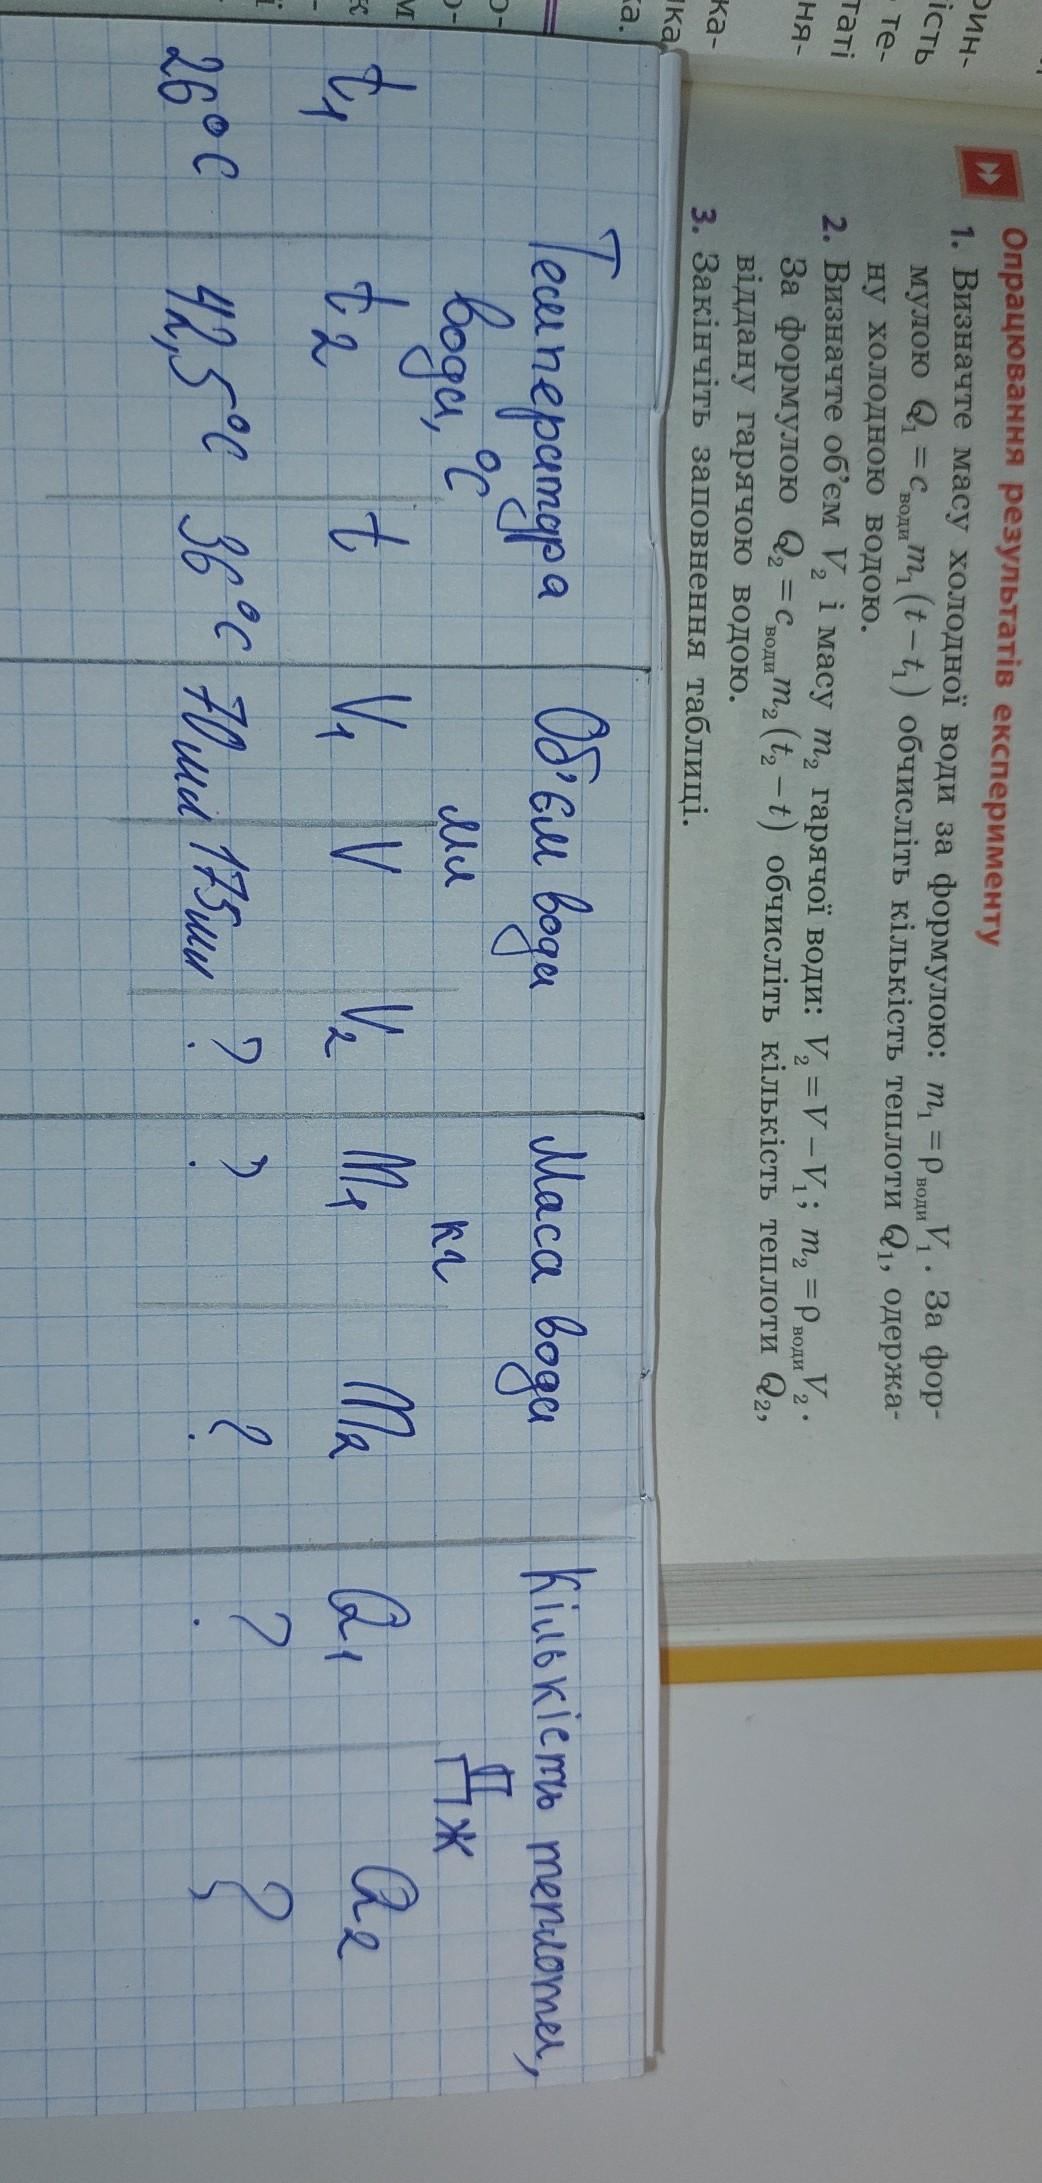 Опрацювання результатів експерименту
1. Визначте масу холодної води за формулою: m₁ = ρводиV₁. За фор-
мулою Q₁ = cводиm₁(t − t₁) обчисліть кількість теплоти Q₁, одержа-
ну холодною водою.
2. Визначте об’єм V₂ і масу m₂ гарячої води: V₂ = V − V₁; m₂ = ρводиV₂.
За формулою Q₂ = cводиm₂(t₂ − t) обчисліть кількість теплоти Q₂,
віддану гарячою водою.
3. Закінчіть заповнення таблиці.
Температура Об'єм води Маса води Кількість теплоти,
води, °C мл кг Дж
t₁ t₂ t V₁ V V₂ m₁ m₂ Q₁ Q₂
26°C 42,5°C 36°C 70мл 175мл ? ? ? ? ?